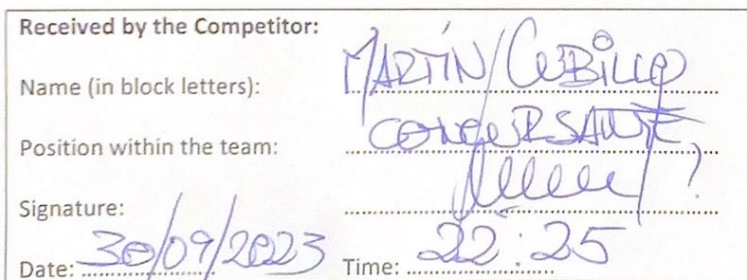 Received by the Competitor:
Name (in block letters): MARTÍN CUBILLO
Position within the team: CONCURSANTE
Signature:
Date: 30/09/2023 Time: 22:25